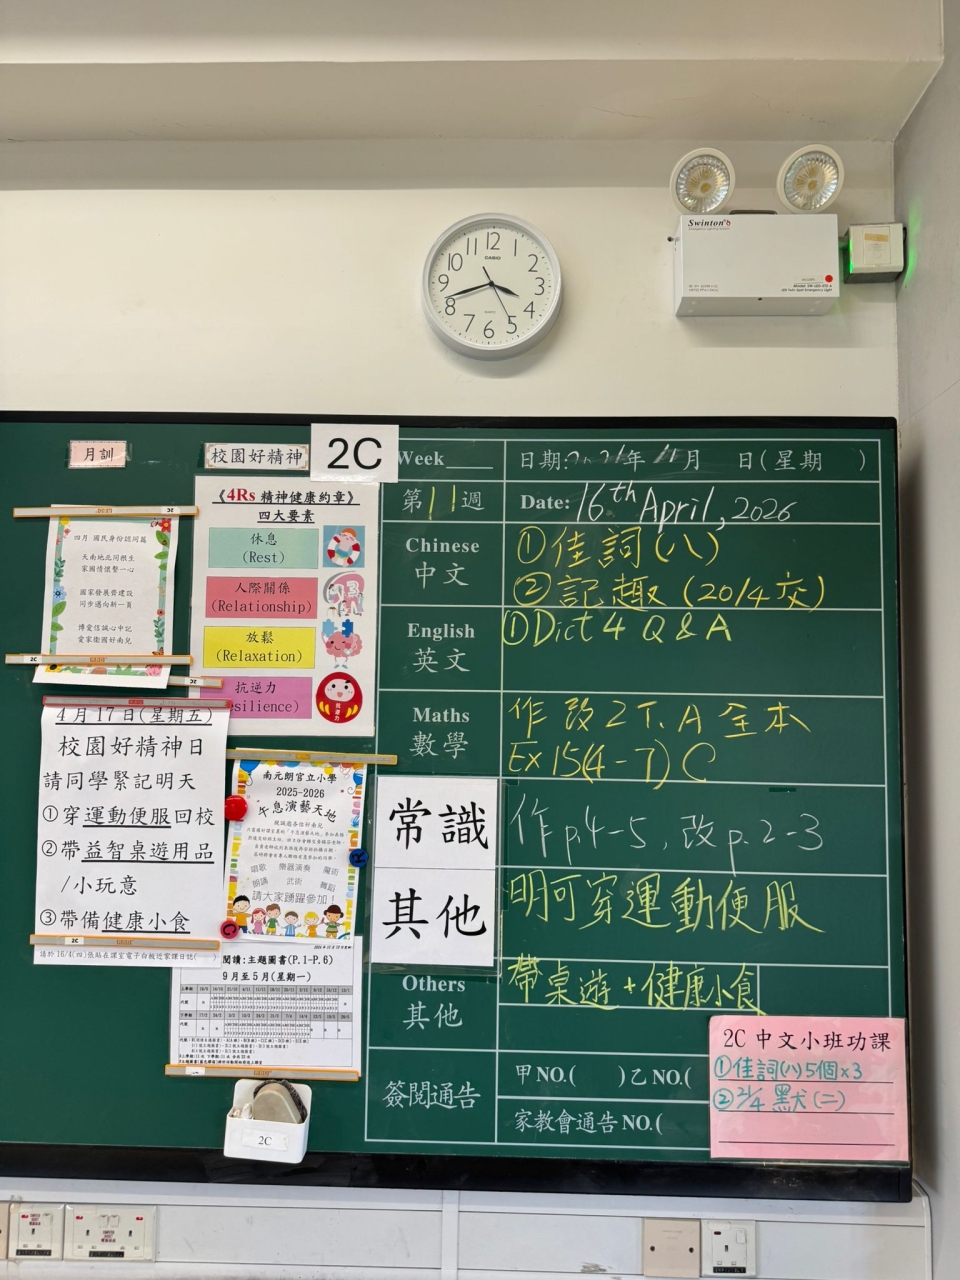 12
1
2
3
4
5
6
7
8
9
10
11
CASIO
QUARTZ
Swinton
月訓
校園好精神
2C
四月 國民身份認同篇
天南地北同根生
家國情懷繫一心
國家發展齊建設
同步邁向新一頁
博愛信誠心中記
愛家衛國好南兒
2C
2C
2C
《4Rs 精神健康約章》
四大要素
休息
(Rest)
人際關係
(Relationship)
放鬆
(Relaxation)
抗逆力
silience)
4月17日(星期五)
校園好精神日
請同學緊記明天
①穿運動便服回校
②帶益智桌遊用品
/小玩意
③帶備健康小食
2C
請於 16/4(四)張貼在課室電子白板近家課日誌( )
南元朗官立小學
2025-2026
息演藝天地
唱歌 樂器演奏 魔術
朗誦 武術 舞蹈
請大家踴躍參加！
C
閱讀:主題圖書(P.1-P.6)
9月至5月(星期一)
2C
Week____
日期: 年 月 日(星期 )
第11週
Date: 16th April, 2026
Chinese
中文
①佳詞(八)
②記趣 (20/4交)
English
英文
①Dict 4 Q & A
Maths
數學
作 改 2T.A 全本
Ex 15(4-7) C
常識
作p.4-5, 改p.2-3
其他
明可穿運動便服
Others
其他
帶桌遊+健康小食
簽閱通告
甲NO.( )乙NO.(
家教會通告NO.(
2C 中文小班功課
①佳詞(八)5個x3